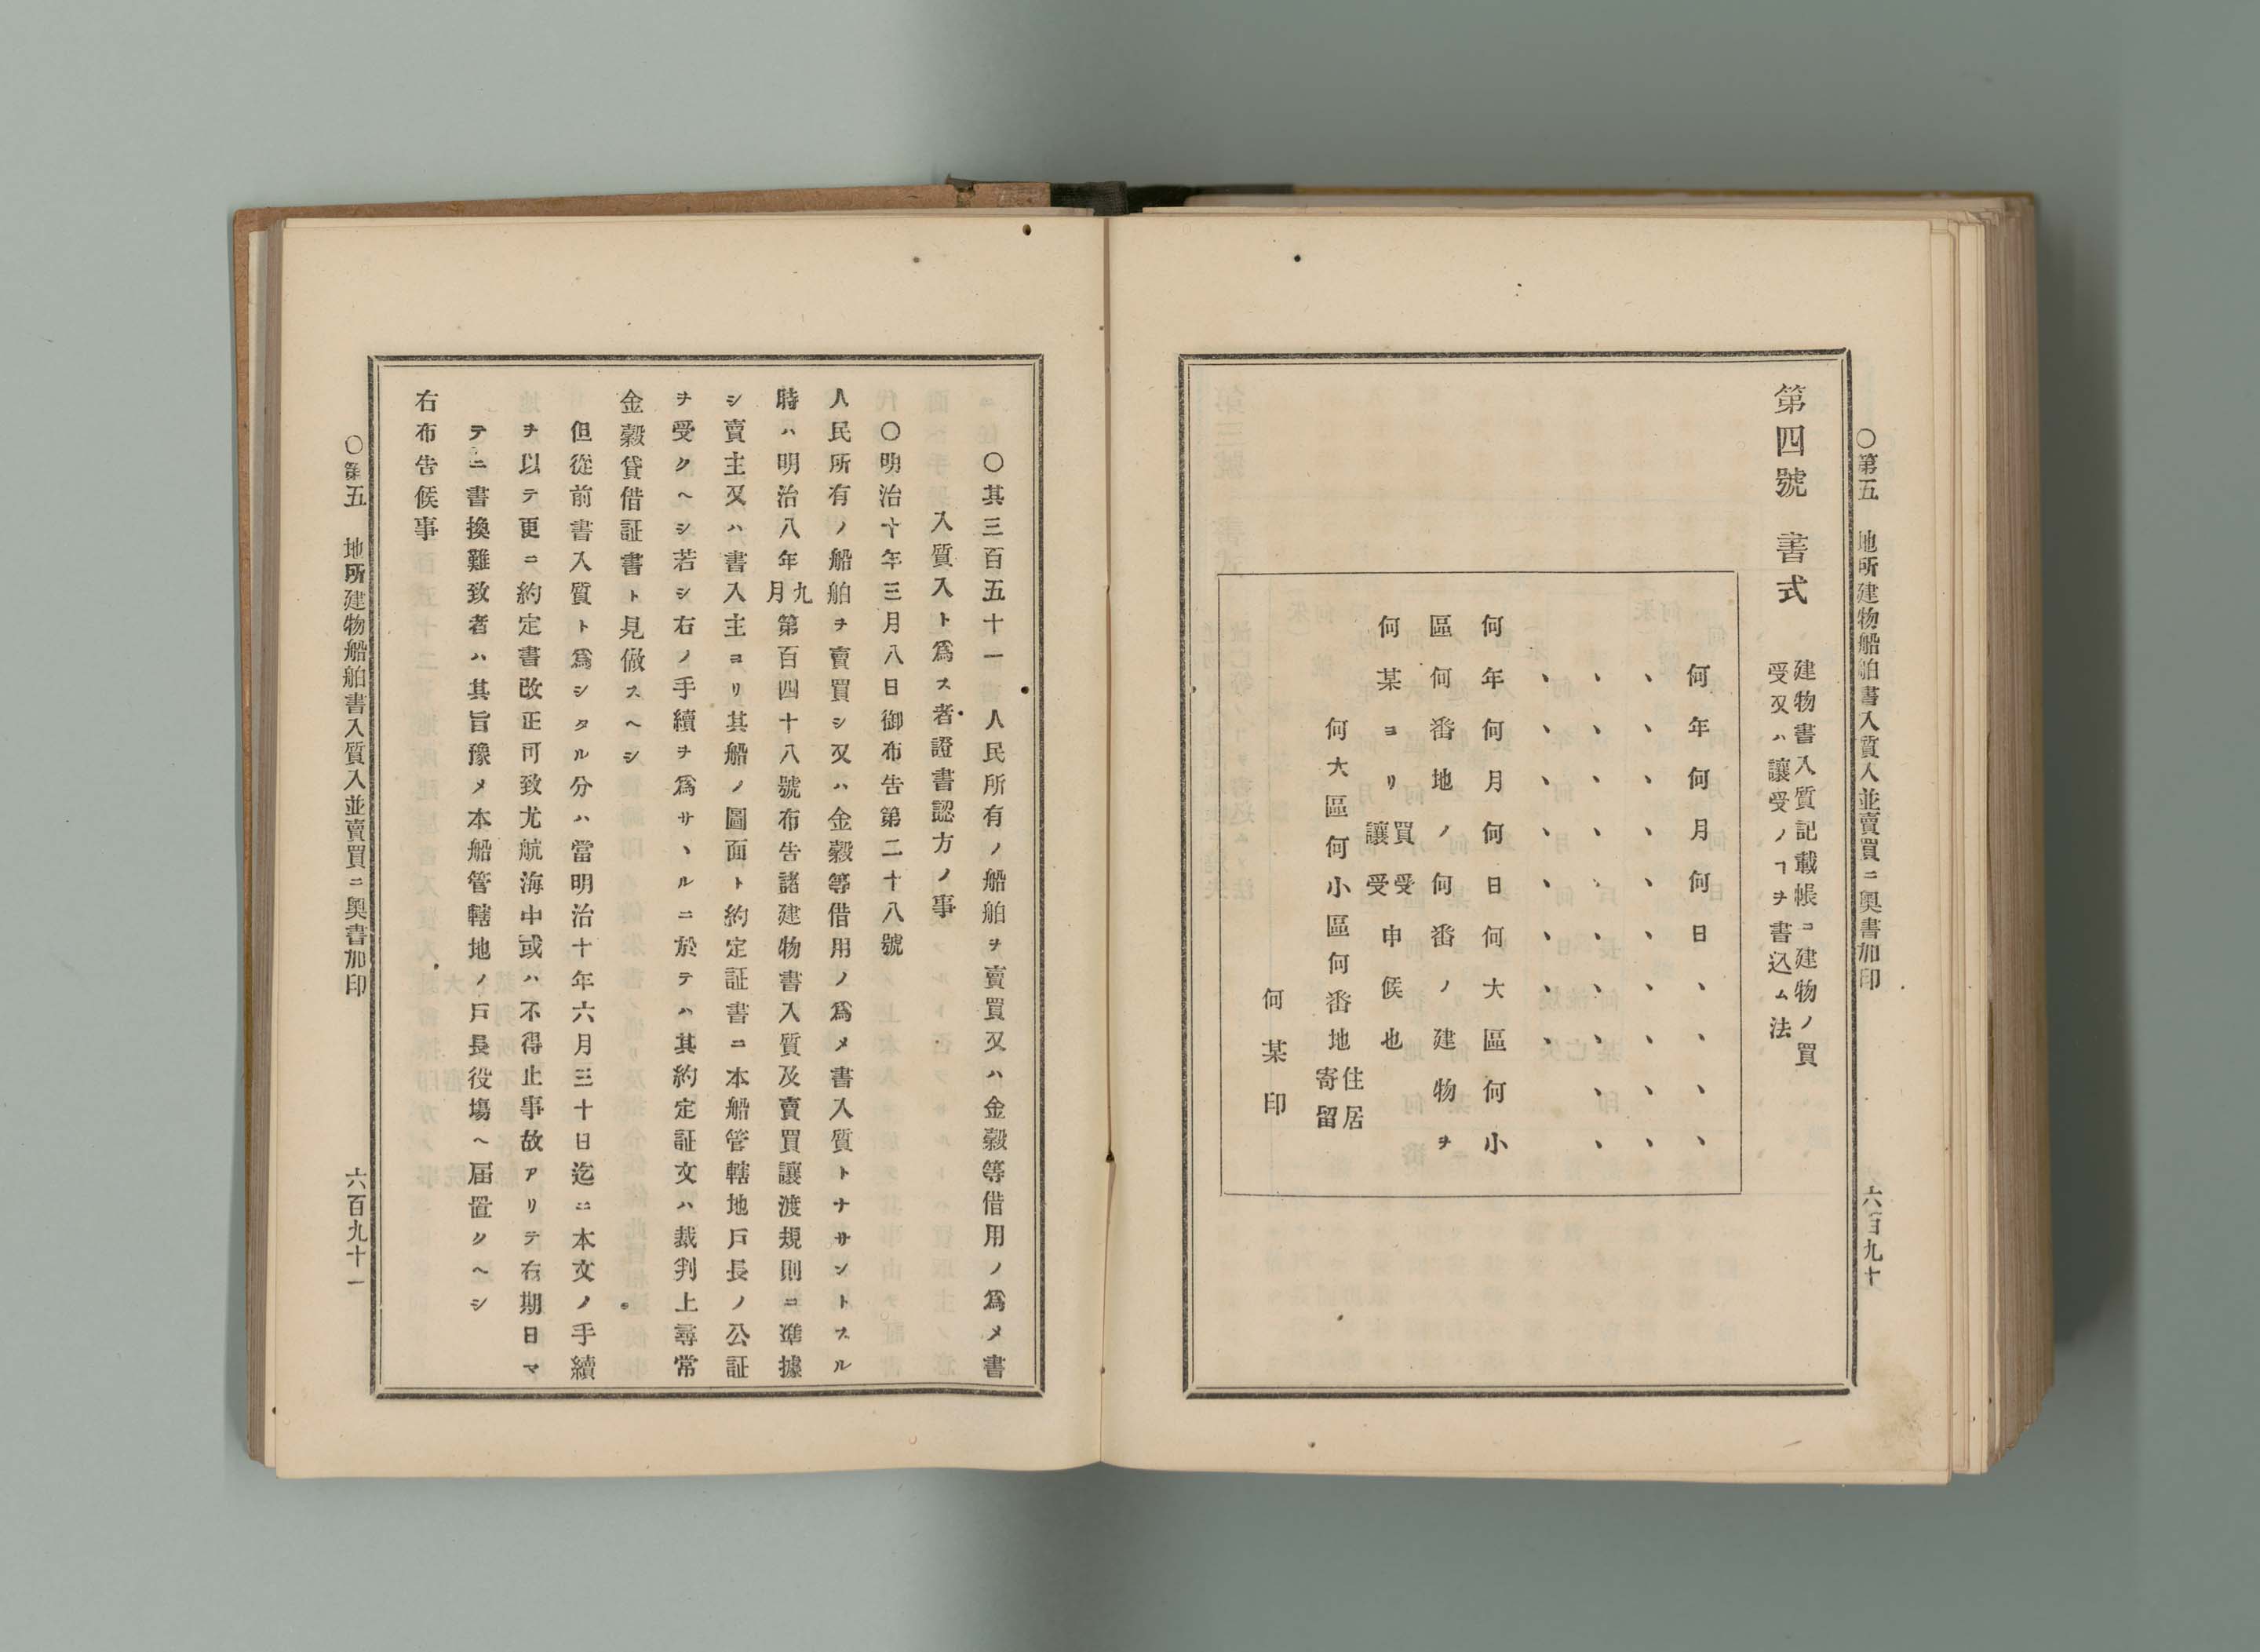 〇第五　地所建物船舶書入質入並賣買ニ奧書加印　六百九十
第四號　書式　建物書入質記載帳ニ建物ノ買
受又ハ讓受ノヿヲ書込ム法
何年何月何日、、、、
、、、、、、、、、、
、、、、、、、、、、
、、、、、、、、
何年何月何日何大區何小
區何番地ノ何番ノ建物ヲ
何某ヨリ買受讓受申候也
何大區何小區何番地住居寄留
何某印
〇其三百五十一　人民所有ノ船舶ヲ賣買又ハ金穀等借用ノ爲メ書
入質入ト爲ス者證書認方ノ事
〇明治十年三月八日御布告第二十八號
人民所有ノ船舶ヲ賣買シ又ハ金穀等借用ノ爲メ書入質トナサントスル
時ハ明治八年九月第百四十八號布告諸建物書入質及賣買讓渡規則ニ準據
シ賣主又ハ書入主ヨリ其船ノ圖面ト約定証書ニ本船管轄地戸長ノ公証
ヲ受クヘシ若シ右ノ手續ヲ爲サヽルニ於テハ其約定証文ハ裁判上尋常
金穀貸借証書ト見做スヘシ
但從前書入質ト爲シタル分ハ當明治十年六月三十日迄ニ本文ノ手續
ヲ以テ更ニ約定書改正可致尤航海中或ハ不得止事故アリテ右期日マ
テニ書換難致者ハ其旨豫メ本船管轄地ノ戸長役塲ヘ届置クヘシ
右布告候事
〇第五　地所建物船舶書入質入並賣買ニ奧書加印　六百九十一